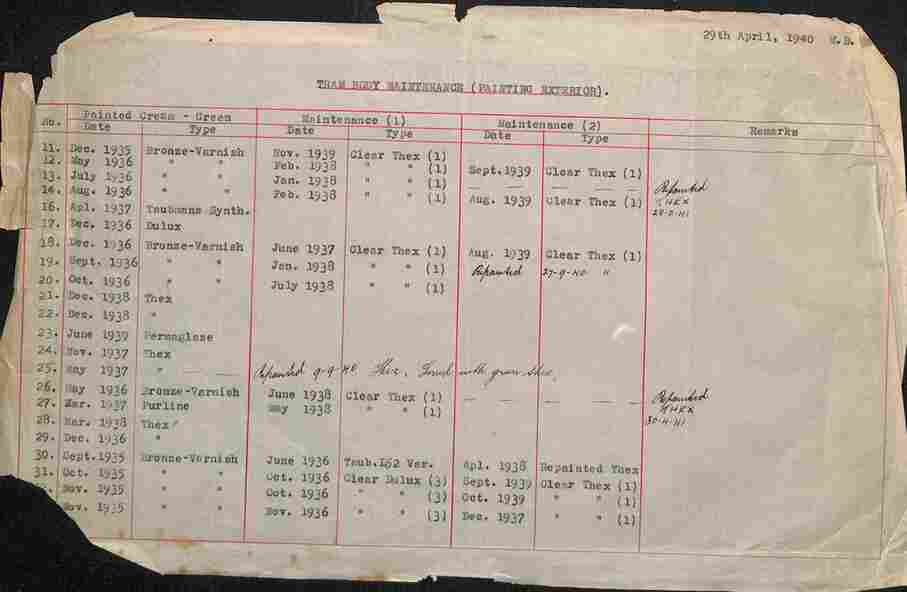 29th April, 1940 M.B.
TRAM BODY MAINTENANCE (PAINTING EXTERIOR).
No. Painted Cream - Green Maintenance (1) Maintenance (2) Remarks
Date Type Date Type Date Type
11. Dec. 1935 Bronze-Varnish Nov. 1939 Clear Thex (1)
12. May 1936 " " Feb. 1938 " " (1) Sept.1939 Clear Thex (1)
13. July 1936 " " Jan. 1938 " " (1) — — — — — Repainted
14. Aug. 1936 " " Feb. 1938 " " (1) Aug. 1939 Clear Thex (1) THEX
16. Apl. 1937 Taubmans Synth.
17. Dec. 1936 Dulux
18. Dec. 1936 Bronze-Varnish June 1937 Clear Thex (1) Aug. 1939 Clear Thex (1)
19. Sept. 1936 " " Jan. 1938 " " (1) Repainted 27-9-40 "
20. Oct. 1936 " " July 1938 " " (1)
21. Dec. 1938 Thex
22. Dec. 1938 "
23. June 1939 Permaglaze
24. Nov. 1937 Thex
25. May 1937 " — — — Repainted 9-9-40 Thex. with green
26. May 1936 Bronze-Varnish June 1938 Clear Thex (1) — — — — — Repainted
27. Mar. 1937 Purline May 1938 " " (1) THEX
28. Mar. 1938 Thex 30-4-41
29. Dec. 1936 "
30. Sept.1935 Bronze-Varnish June 1936 Taub.152 Var. Apl. 1938 Repainted Thex
31. Oct. 1935 " " Oct. 1936 Clear Dulux (3) Sept. 1939 Clear Thex (1)
Nov. 1935 " " Oct. 1936 " " (3) Oct. 1939 " " (1)
Nov. 1935 " " Nov. 1936 " " (3) Dec. 1937 " " (1)